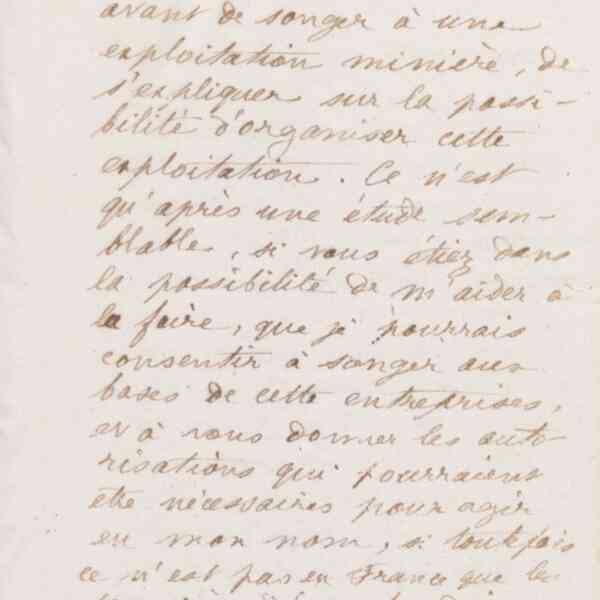 avant de songer à une
exploitation minière, de
s'expliquer sur la possi-
bilité d'organiser cette
exploitation. Ce n'est
qu'après une étude sem-
blable, si vous étiez dans
la possibilité de m'aider à
la faire, que je pourrais
consentir à songer aux
bases de cette entreprises,
et à vous donner les auto-
risations qui pourraient
etre nécessaires pour agir
en mon nom, si toutefois
ce n'est pas en France que les